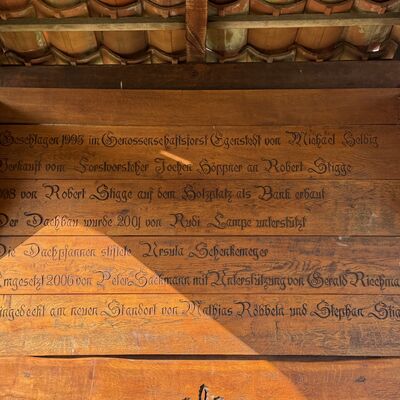 Geschlagen 1995 im Genossenschaftsforst Egenstedt von Michael Helbig
Verkauft vom Forstvorsteher Jochen Höppner an Robert Stigge
1998 von Robert Stigge auf dem Holzplatz als Bank erbaut
Der Dachbau wurde 2001 von Rudi Lampe unterstützt
Die Dachpfannen stiftete Ursula Schenkemeyer
Umgesetzt 2006 von Peter Sackmann mit Unterstützung von Gerald Riechma
ingedeckt am neuen Standort von Mathias Röbbeln und Stephan Stig